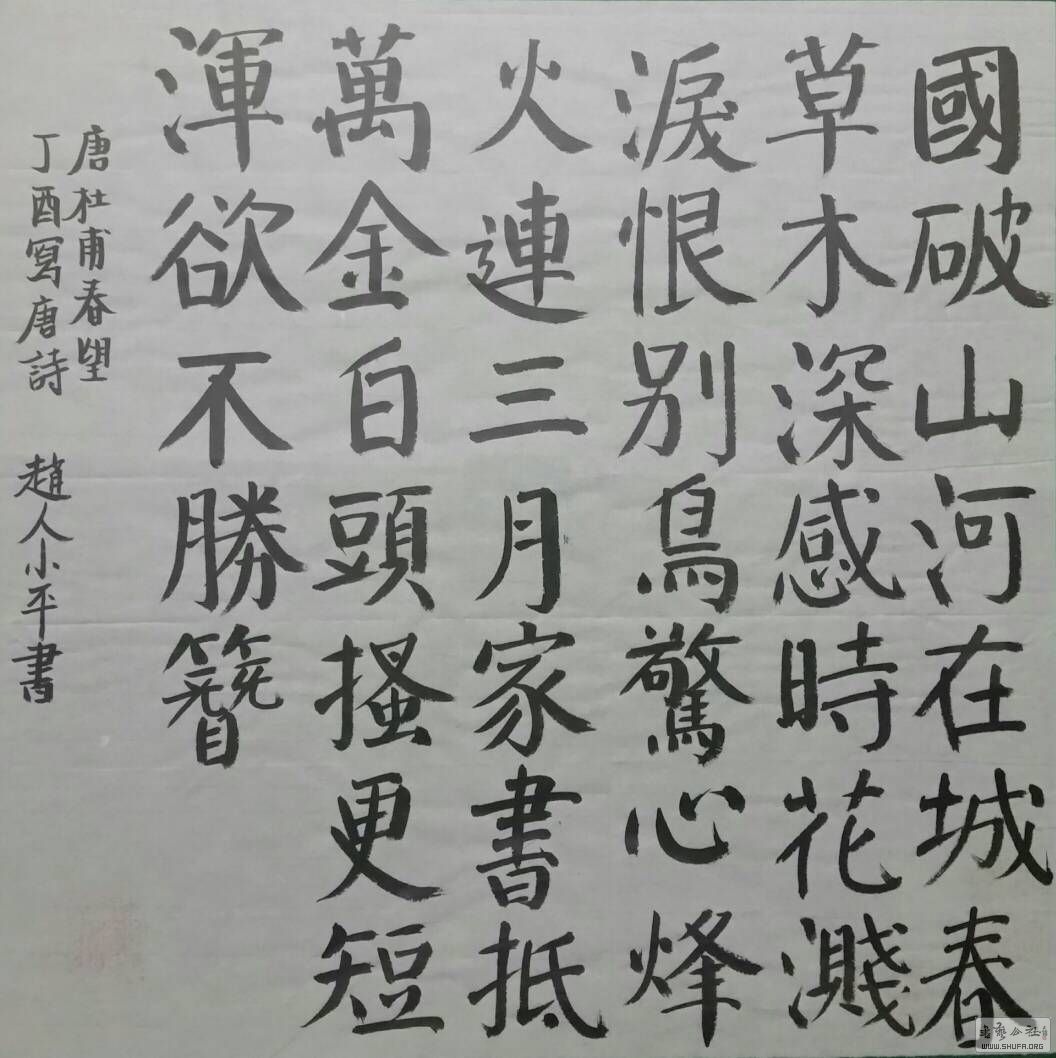 國破山河在城春
草木深感時花濺
淚恨別鳥驚心烽
火連三月家書抵
萬金白頭搔更短
渾欲不勝簪
唐杜甫春望
丁酉寫唐詩 趙人小平書
WWW.SHUFA.ORG